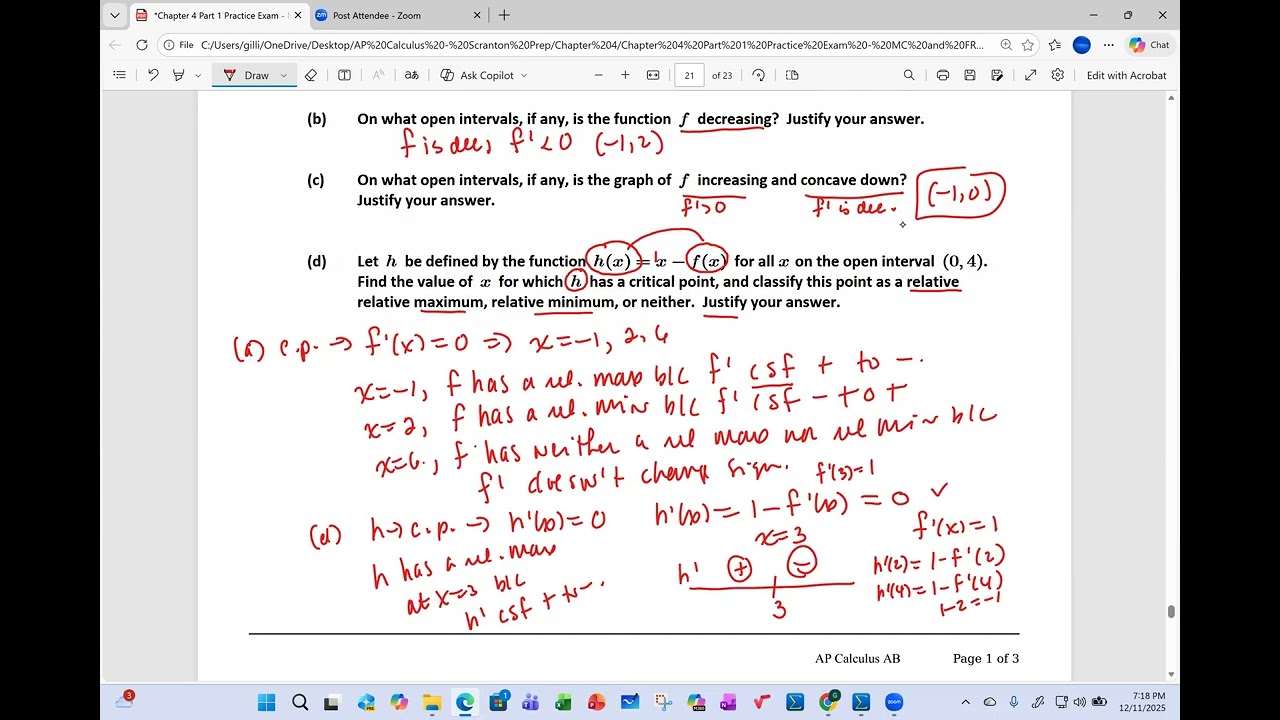 *Chapter 4 Part 1 Practice Exam -
Post Attendee - Zoom
File C:/Users/gilli/OneDrive/Desktop/AP%20Calculus%20-%20Scranton%20Prep/Chapter%204/Chapter%204%20Part%201%20Practice%20Exam%20-%20MC%20and%20FR...
Chat
Draw
Ask Copilot
21 of 23
Edit with Acrobat
(b) On what open intervals, if any, is the function f decreasing? Justify your answer.
f is dec, f' < 0 (-1, 2)
(c) On what open intervals, if any, is the graph of f increasing and concave down? (-1, 0)
Justify your answer. f' > 0 f' is dec.
(d) Let h be defined by the function h(x) = x − f(x) for all x on the open interval (0, 4).
Find the value of x for which h has a critical point, and classify this point as a relative
relative maximum, relative minimum, or neither. Justify your answer.
(a) c.p. → f'(x) = 0 ⇒ x = -1, 2, 6
x = -1, f has a rel. max b/c f' csf + to -.
x = 2, f has a rel. min b/c f' csf - to +
x = 6, f has neither a rel max nor rel min b/c
f' doesn't change sign. f'(3) = 1
(d) h → c.p. → h'(x) = 0 h'(x) = 1 - f'(x) = 0 ✓
x = 3 f'(x) = 1
h has a rel. max h' + - h'(2) = 1 - f'(2)
at x = 3 b/c 3 h'(4) = 1 - f'(4)
h' csf + to -. 1 - 2 = -1
AP Calculus AB Page 1 of 3
3
7:18 PM
12/11/2025